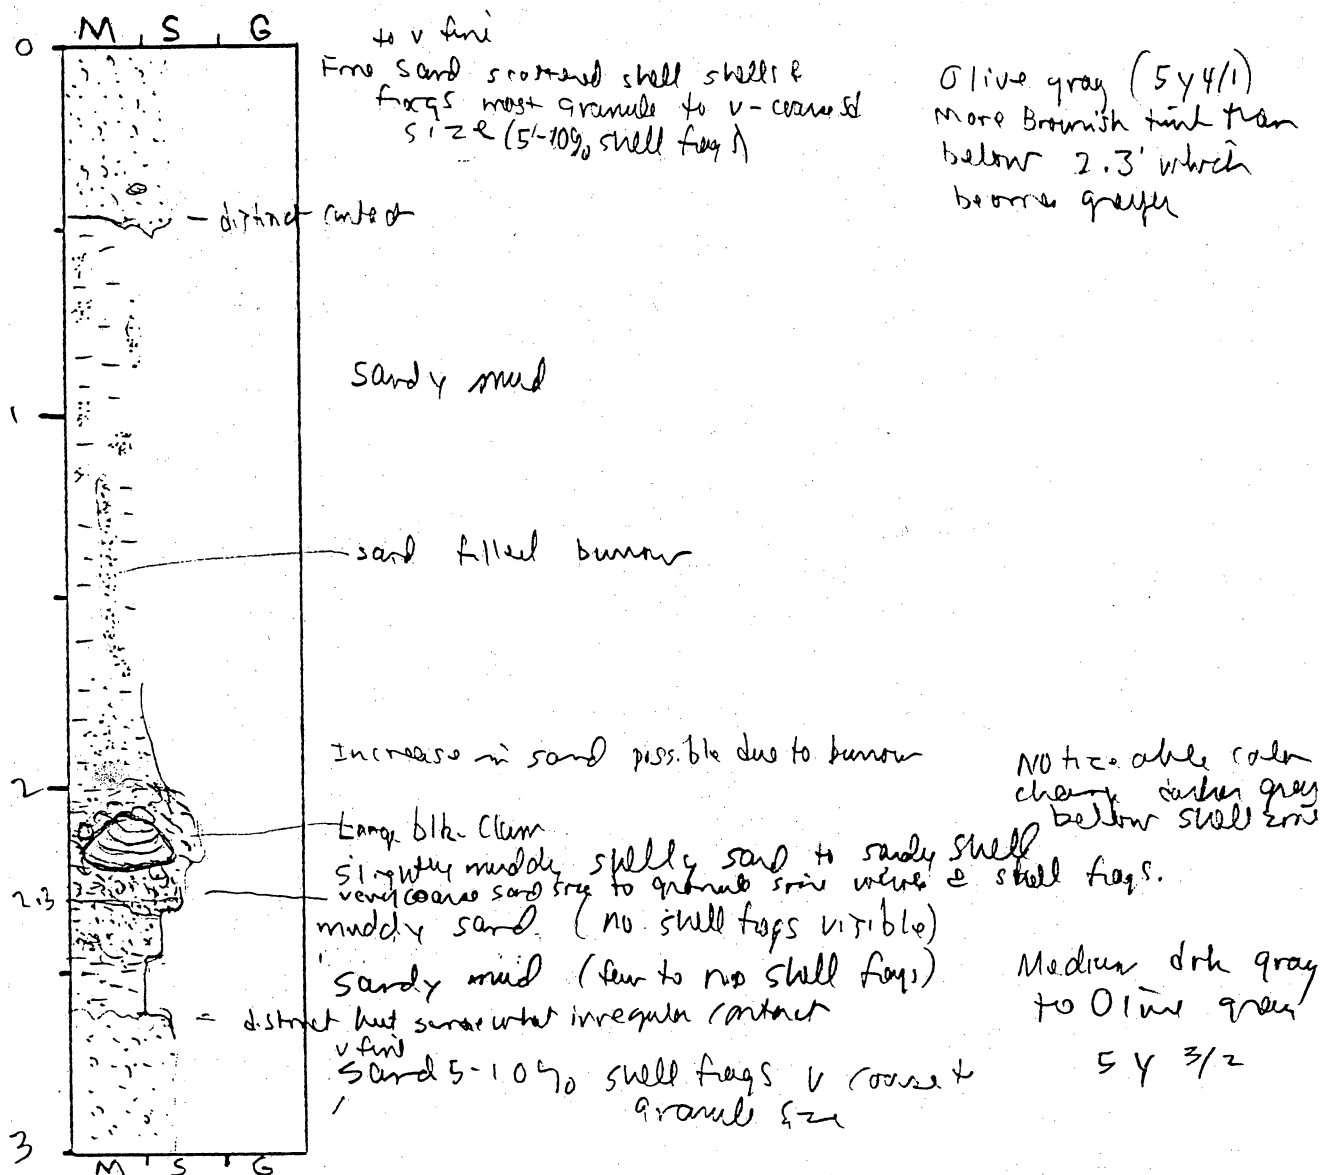 M S G
0
to v fine
Fine sand scattered shell shells &
frags most granule to v-coarse sd
size (5-10% shell frags)
Olive gray (5y4/1)
More Brownish tint than
below 2.3' which
becomes grayer
- distinct contact
Sandy mud
1
sand filled burrow
Increase in sand possible due to burrow
Noticeable color
change darker gray
below shell zone
2
Large blk. Clam
Slightly muddy shelly sand to sandy shell
2.3
very coarse sand size to granule size & shell frags.
muddy sand (no shell frags visible)
Sandy mud (few to no shell frags)
Medium drk gray
to Olive gray
5 Y 3/2
- distinct but somewhat irregular contact
v fine
Sand 5-10% shell frags v coarse to
granule size
3
M S G